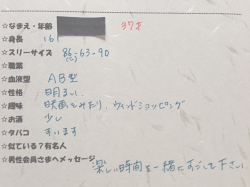 ☆なまえ・年齢 37才
☆身長 16
☆スリーサイズ 86-63-90
(C)
☆職業
☆血液型 AB型
☆性格 明るい
☆趣味 映画をみたり、ウィンドショッピング
☆お酒 少し
☆タバコ すいます
☆似ている?有名人
☆男性会員さまへメッセージ
楽しい時間を一緒にすごして下さい